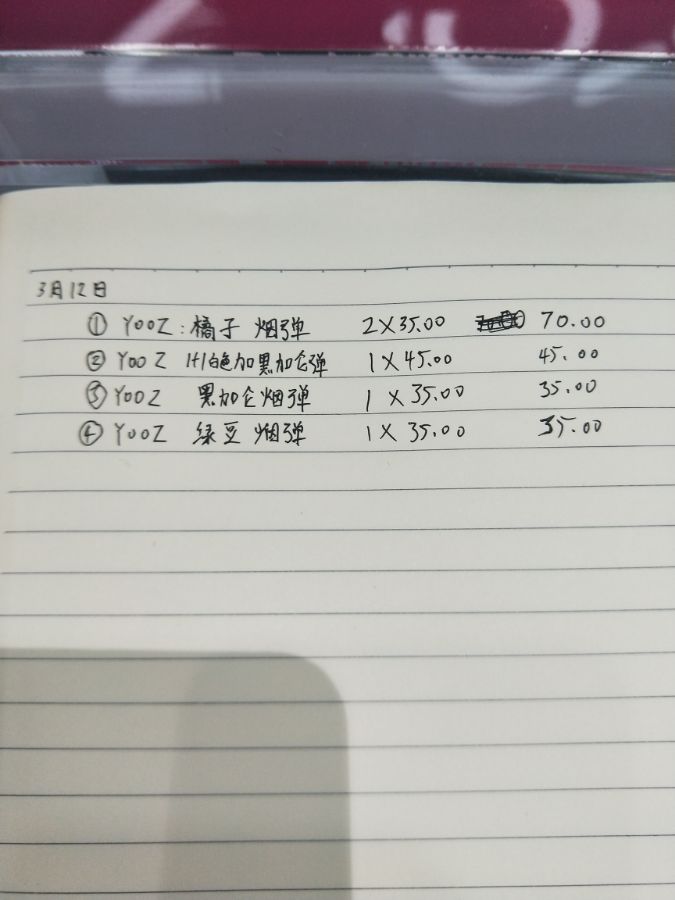 3月12日
① YOOZ：橘子 烟弹 2×35.00 70.00
② YOOZ 1+1白色加黑加仑弹 1×45.00 45.00
③ YOOZ 黑加仑烟弹 1×35.00 35.00
④ YOOZ 绿豆 烟弹 1×35.00 35.00